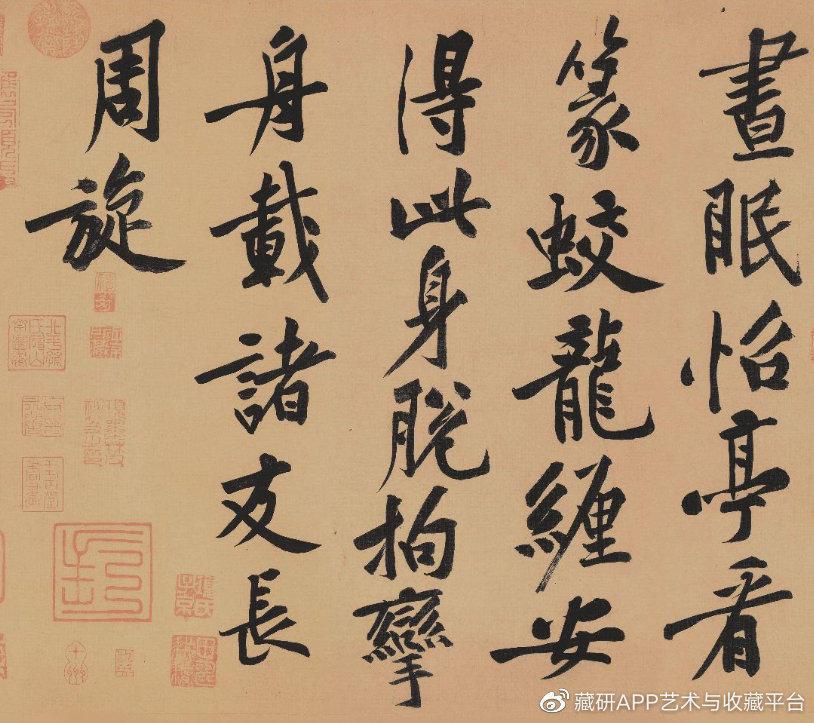 晝眠怡亭看
篆蛟龍纏安
得此身脫拘攣
舟載諸友長
周旋
藏研APP艺术与收藏平台